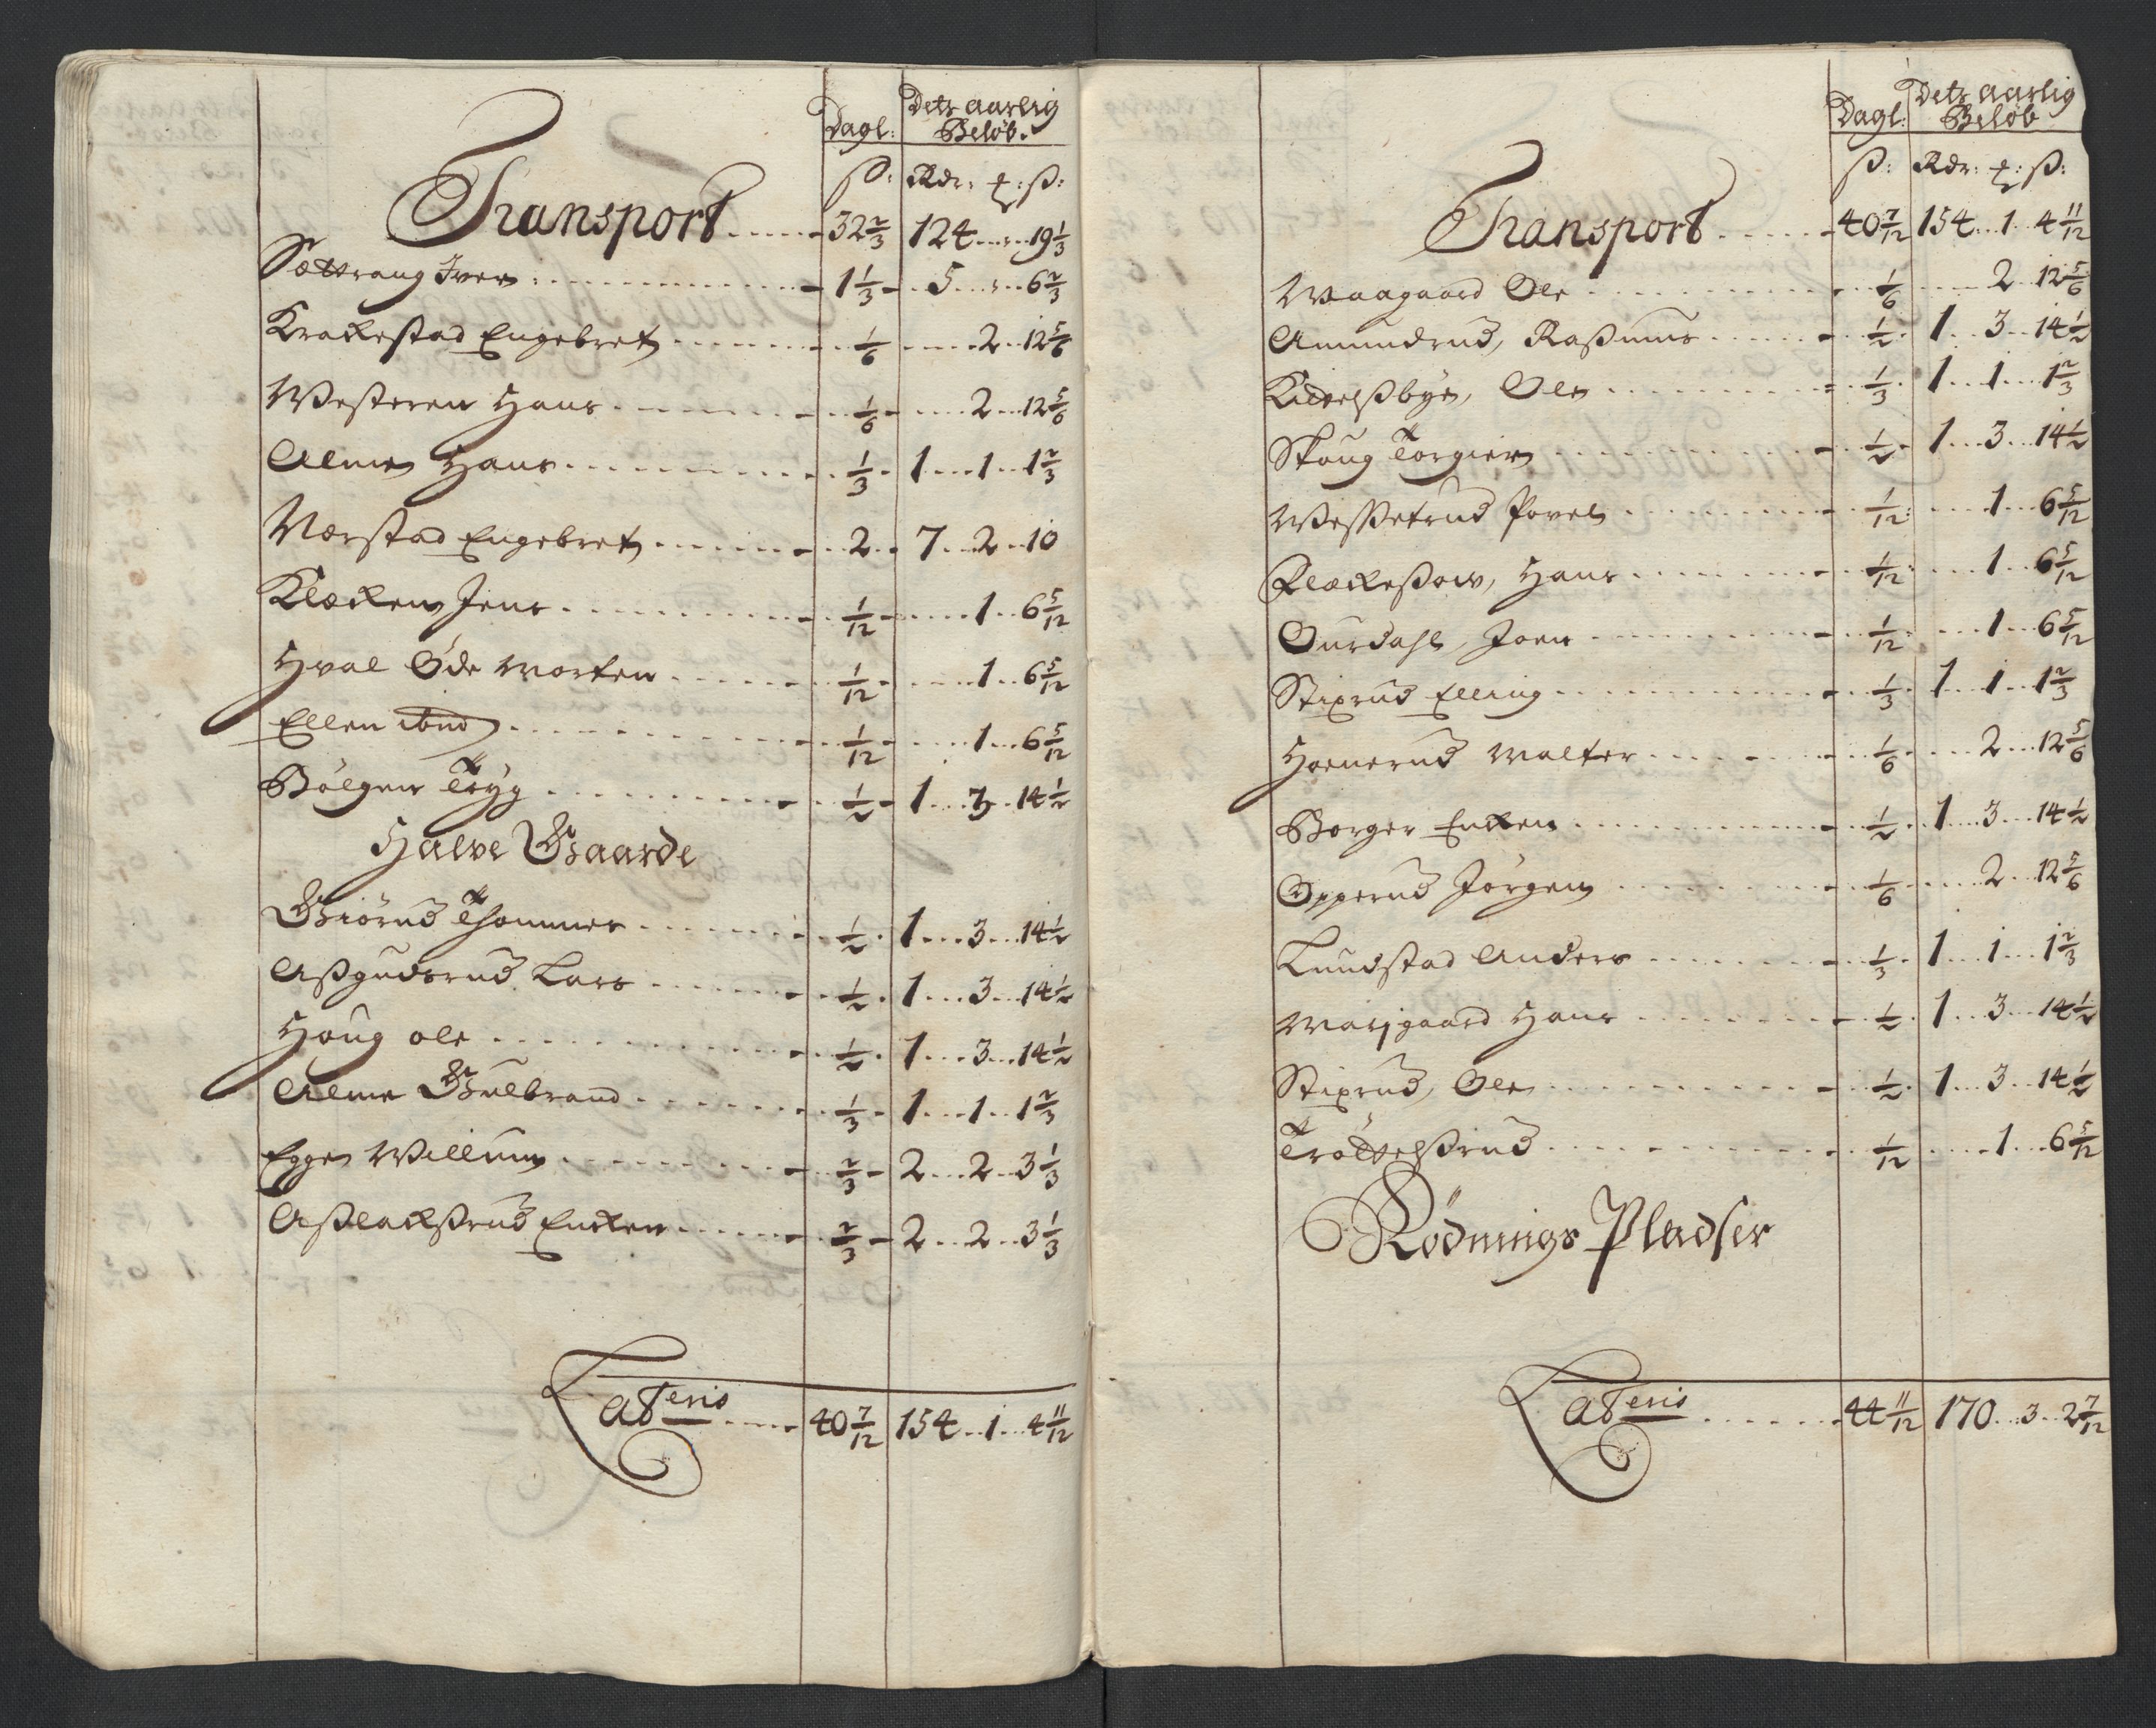 Dagl: Dets aarlig
Beløb.
ß: Rdr: ꝗ: ß:
Transport ..... 32 2/3 124 .... 19 1/3
Sættrang Iver ..... 1 1/3 5 .... 6 2/3
Krakestad Engebret ..... 1/6 2 .. 12 5/6
Westeren Hans ..... 1/6 2 .. 12 5/6
Alme Hans ..... 1/3 1 .. 1 .. 1 2/3
Nærstad Engebret ..... 2 7 .. 2 .. 10
Klæcken Jens ..... 1/12 1 .. 6 5/12
Hval Øde Morten ..... 1/12 1 .. 6 5/12
Ellen ibnd ..... 1/12 1 .. 6 5/12
Bølgen Tryg ..... 1/2 1 .. 3 .. 14 1/2
Halve Gaarde
Giørud Thommes ..... 1/2 1 .. 3 .. 14 1/2
Aßgudsrud Lars ..... 1/2 1 .. 3 .. 14 1/2
Houg ole ..... 1/2 1 .. 3 .. 14 1/2
Alme Gulbrand ..... 1/3 1 .. 1 .. 1 2/3
Egge Willum ..... 2/3 2 .. 2 .. 3 1/3
Aßlackßrud Encken ..... 2/3 2 .. 2 .. 3 1/3
Lateris ..... 40 7/12 154 .. 1 .. 4 11/12
Dagl: Dets aarlig
Beløb
ß: Rdr: ꝗ: ß:
Transport ..... 40 7/12 154 .. 1 .. 4 11/12
Waagaard Ole ..... 1/6 2 .. 12 5/6
Amundrud, Raßmus ..... 1/2 1 .. 3 .. 14 1/2
Kittelßbye, Ole ..... 1/3 1 .. 1 .. 1 2/3
Skoug Torgier ..... 1/2 1 .. 3 .. 14 1/2
Weßetrud Povel ..... 1/12 1 .. 6 5/12
Flackeßow, Hans ..... 1/12 1 .. 6 5/12
Ourdahl, Joen ..... 1/12 1 .. 6 5/12
Stixrud Elling ..... 1/3 1 .. 1 .. 1 2/3
Hoenerud Walter ..... 1/6 2 .. 12 5/6
Borger Encken ..... 1/2 1 .. 3 .. 14 1/2
Opperud Jørgen ..... 1/6 2 .. 12 5/6
Lundstad Anders ..... 1/3 1 .. 1 .. 1 2/3
Marjgaard Hans ..... 1/2 1 .. 3 .. 14 1/2
Stixrud, Ole ..... 1/2 1 .. 3 .. 14 1/2
Trøttelßrud ..... 1/12 1 .. 6 5/12
Rødnings Pladser
Lateris ..... 44 11/12 170 .. 3 .. 2 7/12